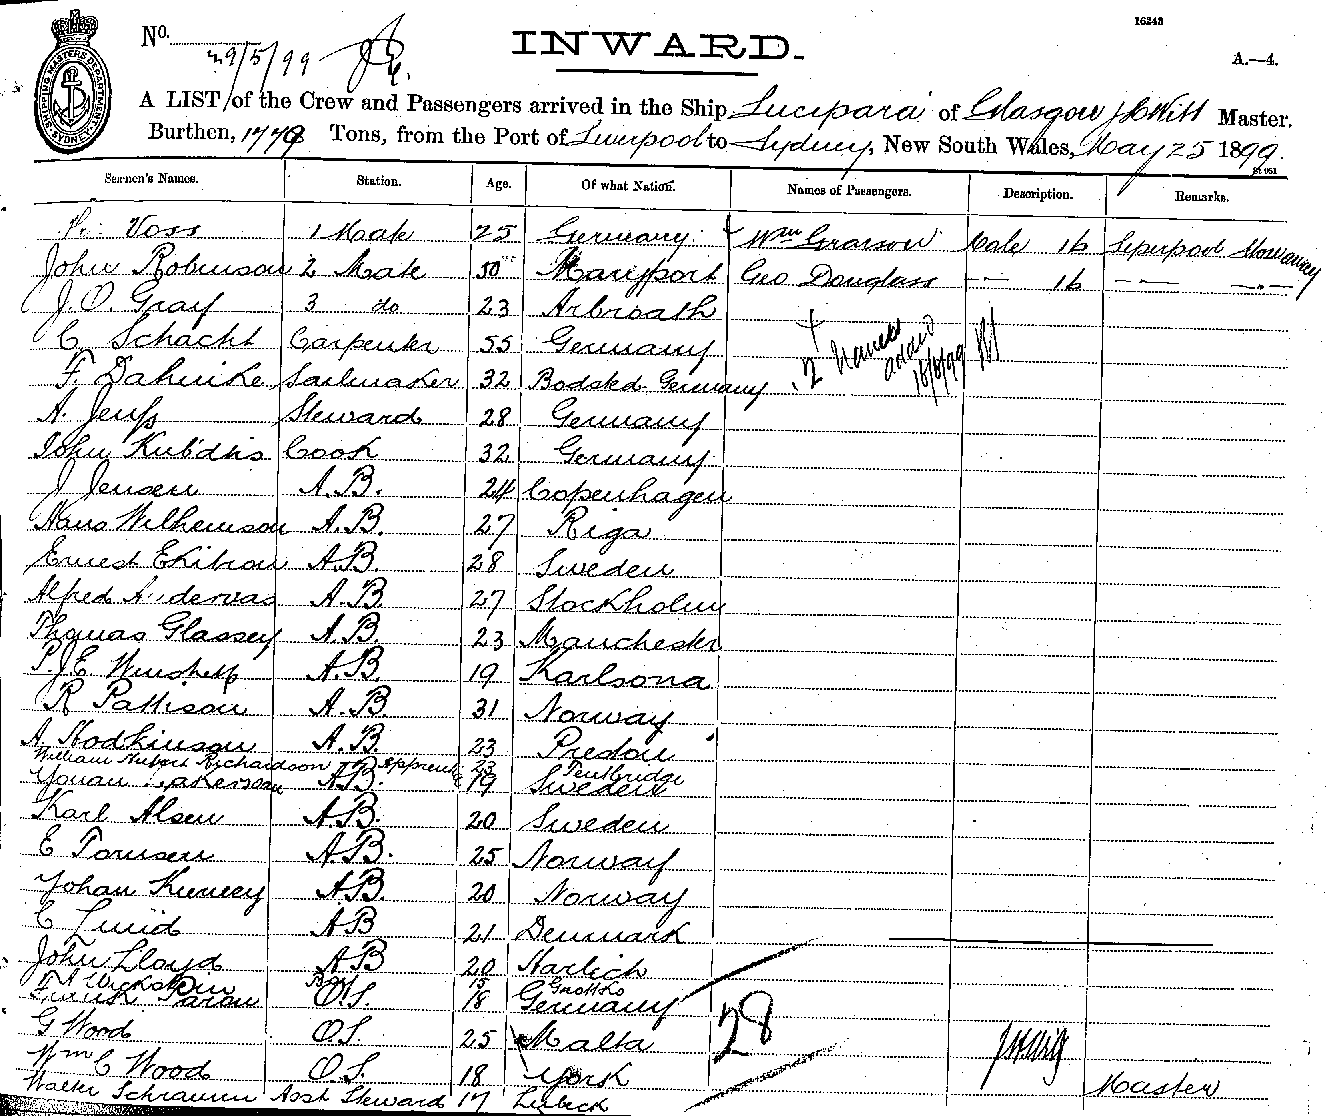 16243
No. 29/5/99
INWARD.
A.—4.
SHIPPING MASTERS DEPARTMENT SYDNEY
A LIST of the Crew and Passengers arrived in the Ship Lucipara of Glasgow Master.
Burthen, 1778 Tons, from the Port of Liverpool to Sydney, New South Wales, May 25 1899.
Seamen's Names. Station. Age. Of what Nation. Names of Passengers. Description. Remarks.
Voss 1 Mate 25 Germany Wm Grarson Male 16 Liverpool Stowaway
John Robinson 2 Mate 50 Maryport Geo Douglass — 16 — —
J. O. Gray 3 do 23 Arbroath
C Schacht Carpenter 55 Germany 2 names added 18/8/99
F. Dahnike Sailmaker 32 Germany
A. Jenss Steward 28 Germany
John Cook 32 Germany
J Jensen A.B. 24 Copenhagen
Hans Wilhemson A.B. 27 Riga
Ernest A.B. 28 Sweden
Alfred A.B. 27 Stockholm
Thomas Glassey A.B. 23 Manchester
P. J. E. A.B. 19 Karlsona
R Pattison A.B. 31 Norway
A. Hodkinson A.B. 23 Preston
William Hubert Richardson Apprentice 23
A.B. 19 Sweden
Karl Alsen A.B. 20 Sweden
E Tomsen A.B. 25 Norway
Johan A.B. 20 Norway
C Lund AB 21 Denmark
John Lloyd AB 20 Harlech
Boy 15
O.S. 18 Germany
G Wood O.S. 25 Malta 28
Wm C Wood O.S. 18 York Master
Walter Schramm Asst Steward 17 Lubeck